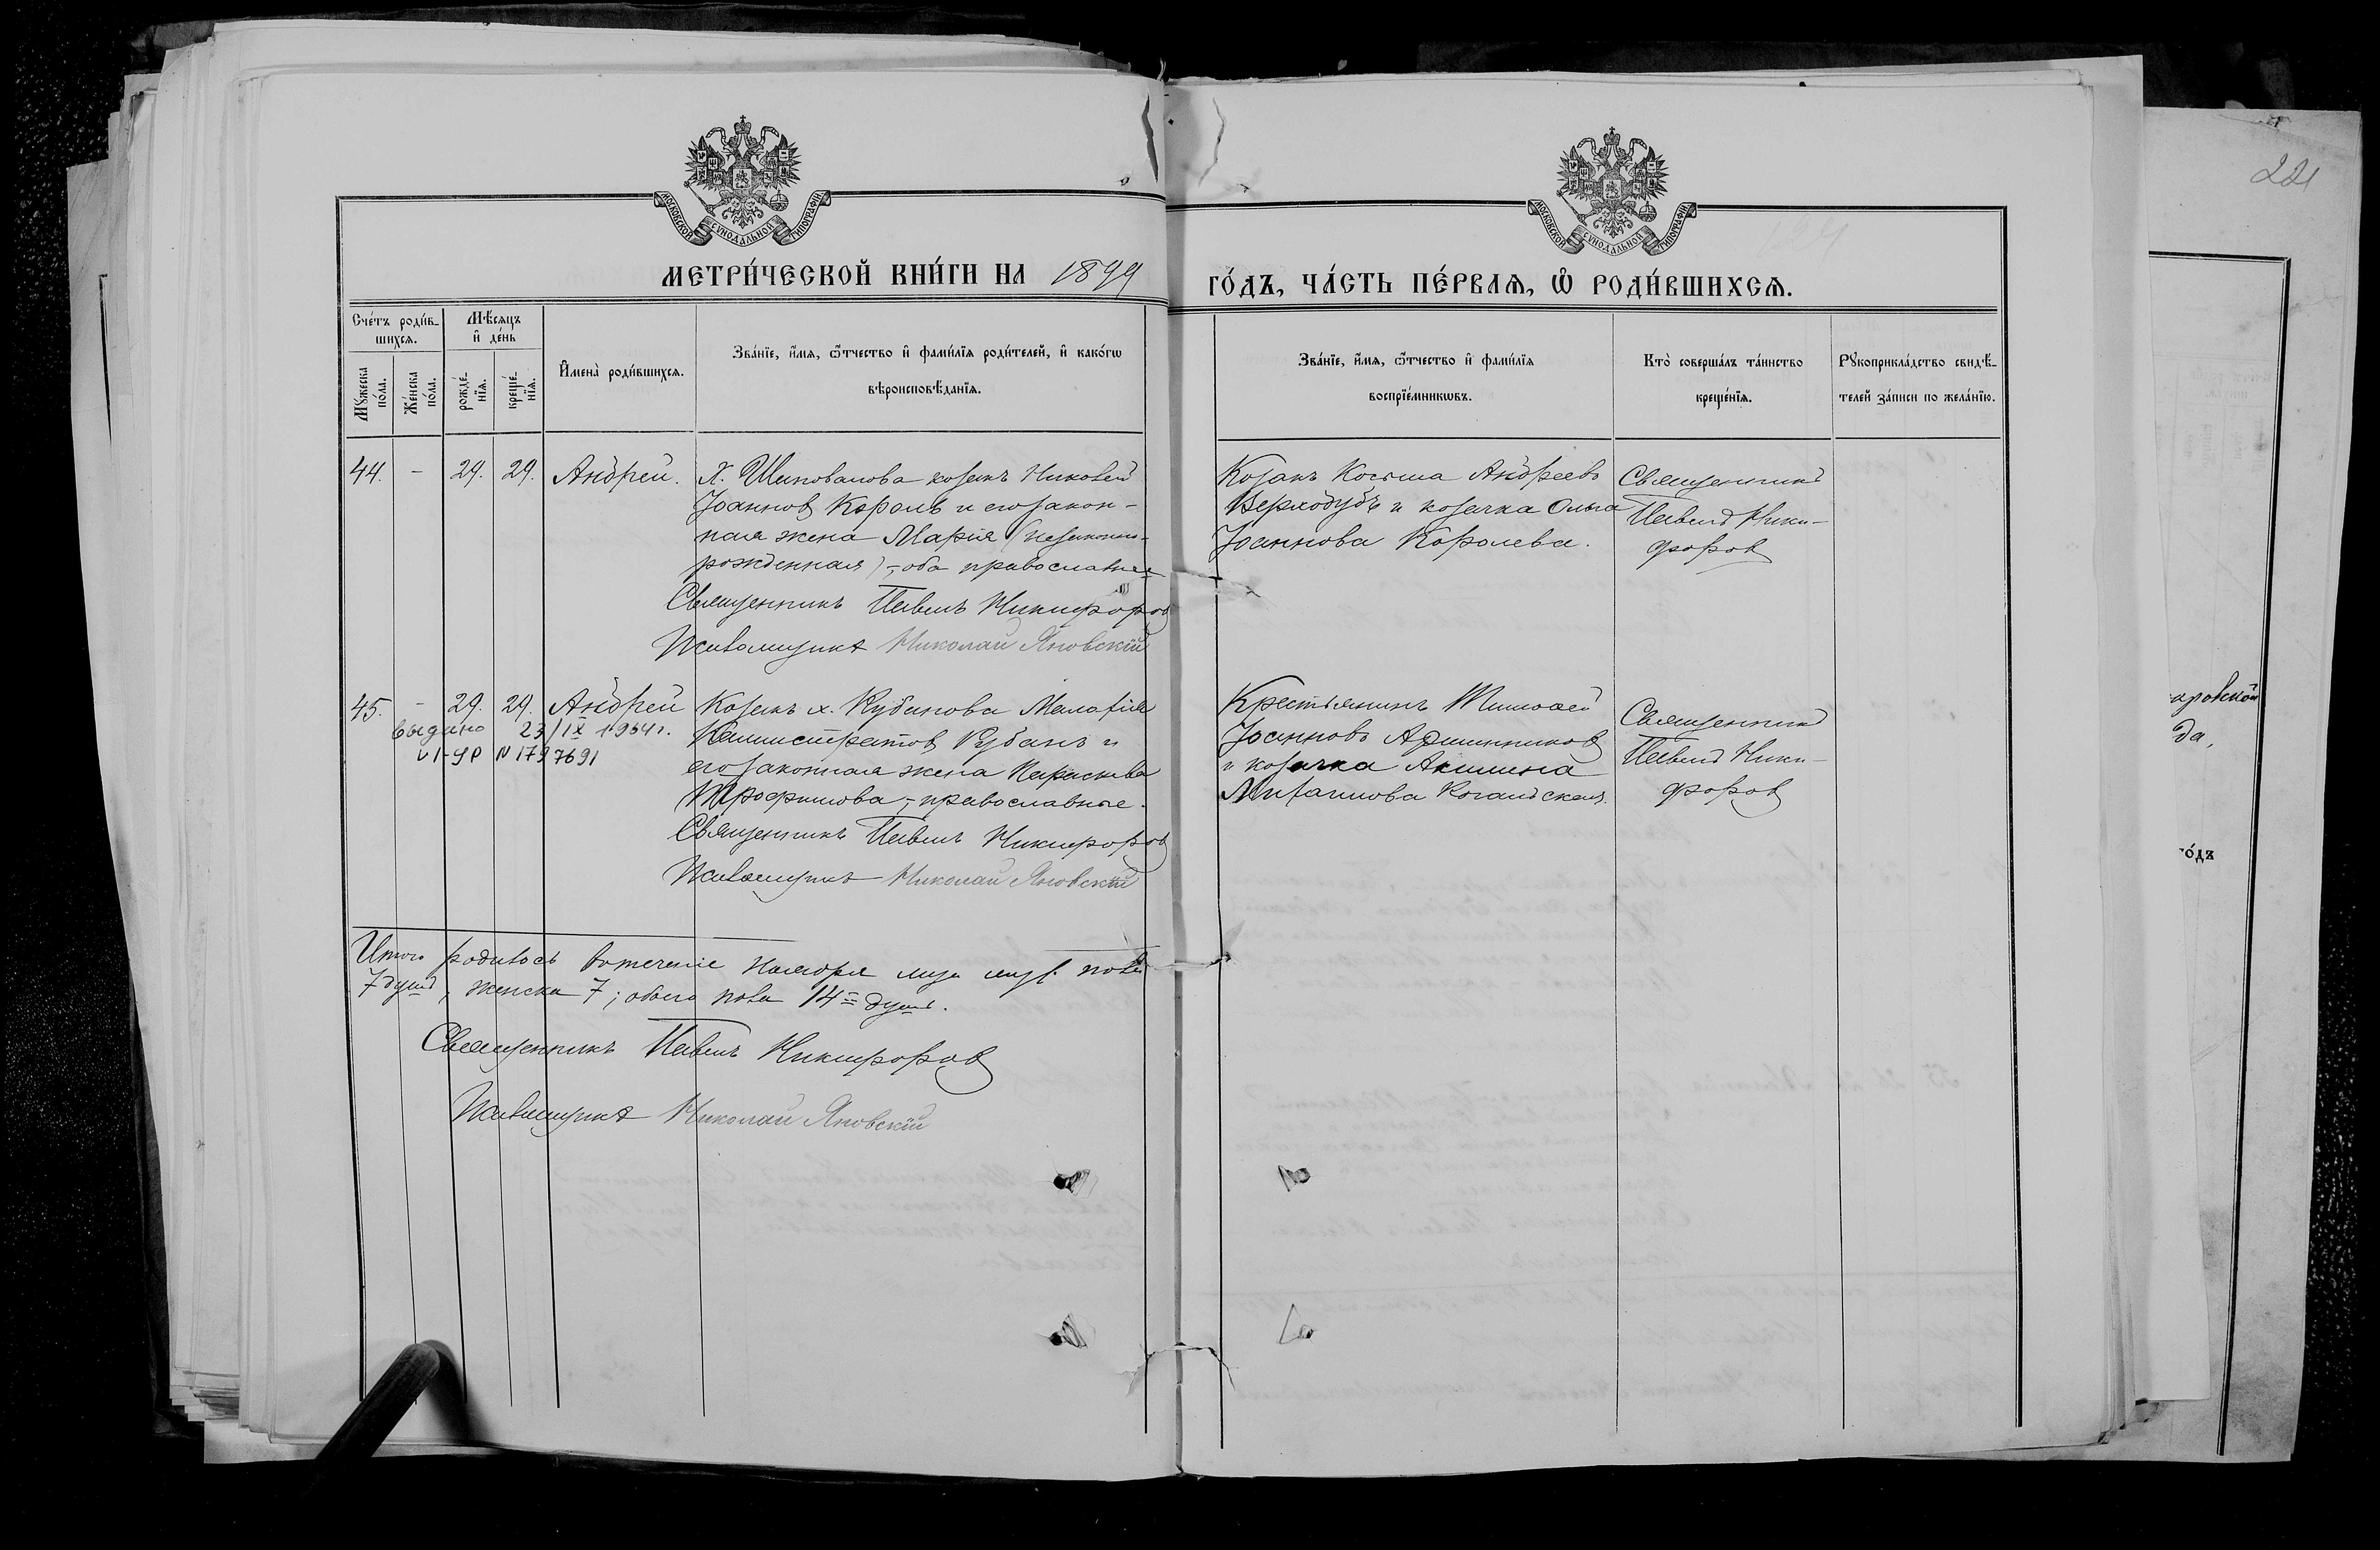 221
МОСКОВСКОЙ СѴНОДАЛЬНОЙ ТИПОГРАФІИ
МОСКОВСКОЙ СѴНОДАЛЬНОЙ ТИПОГРАФІИ
МЕТРИ́ЧЕСКОЙ КНИ́ГИ НА 1899
ГО́ДЪ, ЧА́СТЬ ПЕ́РВАѦ, Ѡ҆ РОДИ́ВШИХСѦ.
Сче́тъ роди́в-
шихсѧ.
Мѣ́сѧцъ
и҆ де́нь
Мꙋ́жеска
по́ла.
Же́нска
по́ла.
рожде́-
нїѧ.
креще́-
нїѧ.
И҆мена̀ роди́вшихсѧ.
Зва́нїе, и҆́мѧ, ѻ҆́тчество и҆ фами́лїѧ роди́телей, и҆ како́гѡ
вѣроисповѣ́данїѧ.
Зва́нїе, и҆́мѧ, ѻ҆́тчество и҆ фами́лїѧ
воспрїе́мникѡвъ.
Кто̀ соверша́лъ та́инство
креще́нїѧ.
Рꙋкоприкла́дство свидѣ́-
телей за́писи по жела́нїю.
44. - 29. 29. Андрей.
Х. Шаповалова козакъ Николай
Іоанновъ Король и его закон-
ная жена Марія (незаконно-
рожденная), оба православные
Священникъ Павелъ Никифоровъ
Псаломщикъ Николай Яновскій
Козакъ Косьма Андреевъ
Верходубъ и козачка Ольга
Іоаннова Королева.
Священникъ
Павелъ Ники-
форовъ
45. - 29. 29. Андрей
выдано 23/IX 1954 г.
VI-УР N 1797691
Козакъ х. Рубанова Малафій
Каллистратовъ Рубанъ и
его законная жена Параскева
Трофимова, православные.
Священникъ Павелъ Никифоровъ
Псаломщикъ Николай Яновскій
Крестьянинъ Тимофей
Іоанновъ Аршинниковъ
и козачка Акилина
Митрофанова
Священникъ
Павелъ Ники-
форовъ
Итого родилось въ теченіе Ноября муж. пола
7 душъ, женска 7; обоего пола 14 душъ.
Священникъ Павелъ Никифоровъ
Псаломщикъ Николай Яновскій
да,
го́дъ